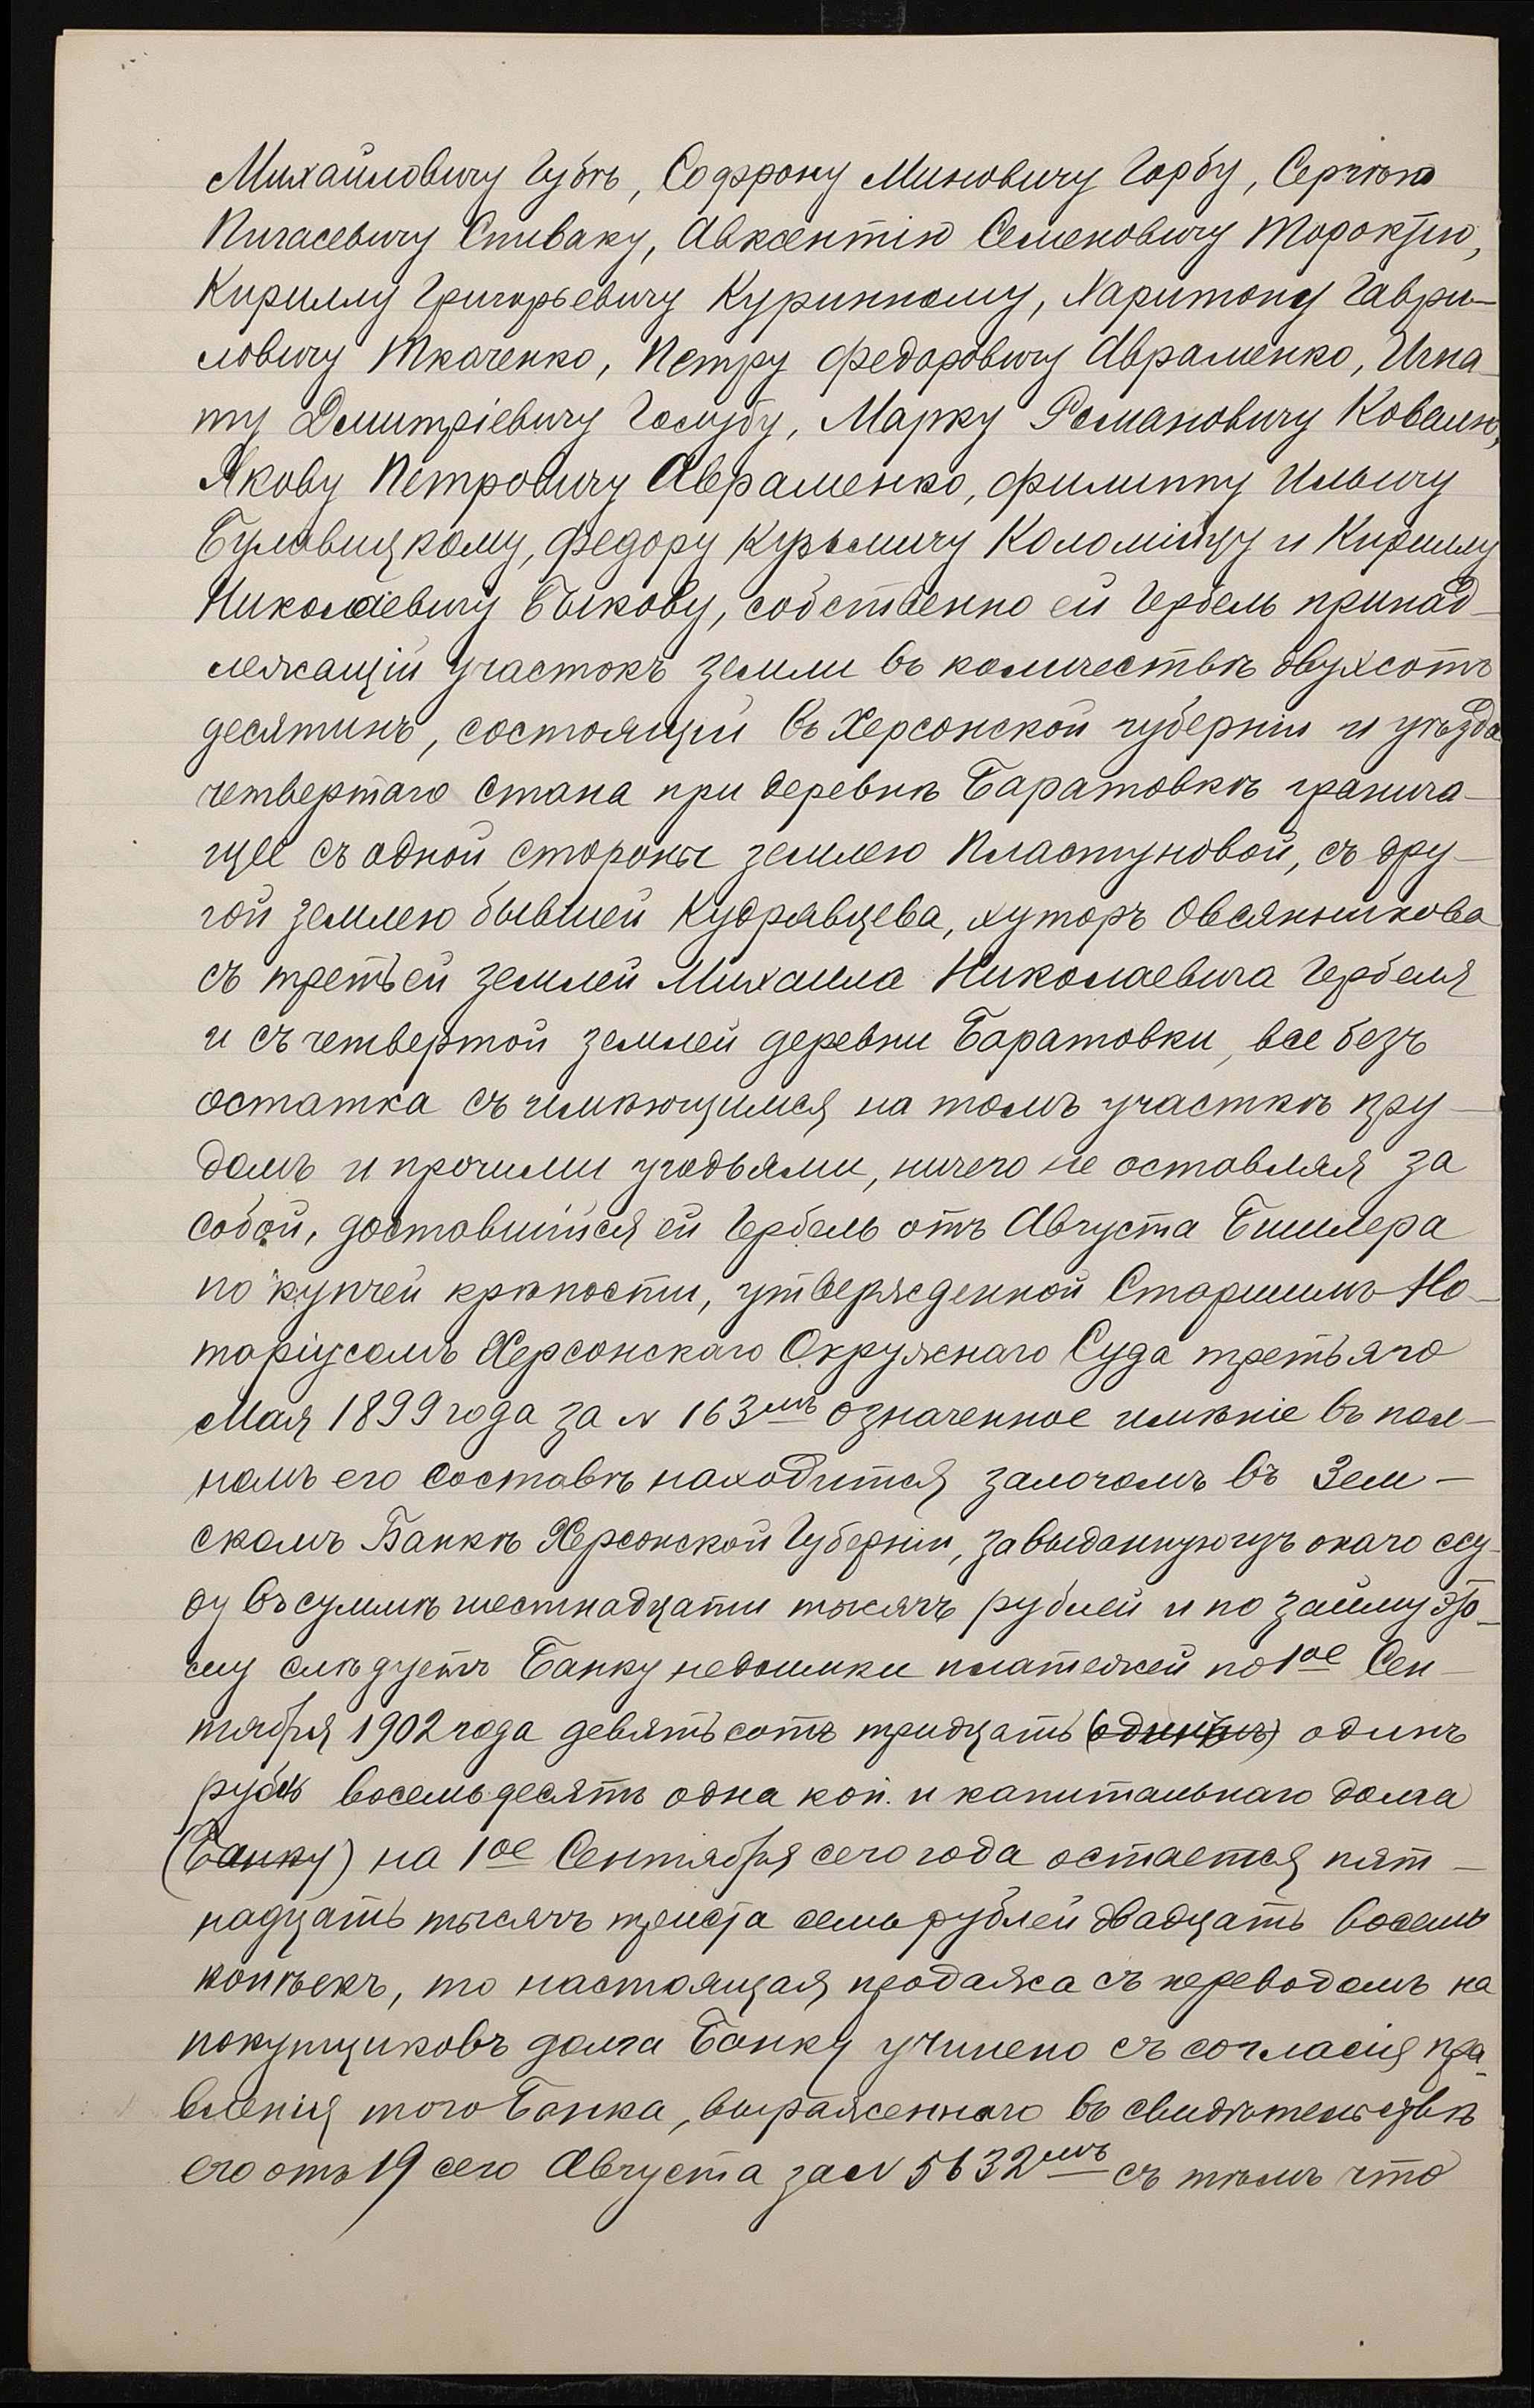 Михайловичу Губѣ, Софрону Миновичу Горбу, Сергѣю
Пигасевичу Спиваку, Авксентію Семеновичу Тороктію,
Кириллу Григорьевичу Куринному, Харитону Гаври-
ловичу Ткаченко, Петру Федоровичу Авраменко, Игна-
ту Дмитріевичу Голубу, Марку Романовичу Ковалю,
Якову Петровичу Авраменко, Филиппу Ильичу
Булавицкому, Федору Кузьмичу Коломійцу и Кириллу
Николаевичу Быкову, собственно ей Гербель принад-
лежащій участокъ земли въ количествѣ двухсотъ
десятинъ, состоящій въ Херсонской губерніи и уѣзда
четвертаго стана при деревнѣ Баратовкѣ гранича-
щее съ одной стороны землею Пластуновой, съ дру-
гой землею бывшей Кудрявцева, хуторъ Овсянникова
съ третьей землей Михаила Николаевича Гербеля
и съ четвертой землей деревни Баратовки, все безъ
остатка съ имѣющимся на томъ участкѣ пру-
домъ и прочими угодьями, ничего не оставляя за
собой, доставшійся ей Гербель отъ Августа Бишлера
по купчей крѣпости, утвержденной Старшимъ Но-
таріусомъ Херсонскаго Окружнаго Суда третьяго
Мая 1899 года за N 163мъ означенное имѣніе въ пол-
номъ его составѣ находится залогомъ въ Зем-
скомъ Банкѣ Херсонской Губерніи, за выданную изъ онаго ссу-
ду въ суммѣ шестнадцати тысячъ рублей и по займу это-
му слѣдуетъ Банку недоимки платежей по 1ое Сен-
тября 1902 года девятьсотъ тридцать (одинъ) одинъ
рубль восемьдесятъ одна коп. и капитальнаго долга
(Банку) на 1ое Сентября сего года остается пят-
надцать тысячъ триста семь рублей двадцать восемь
копѣекъ, то настоящая продажа съ переводомъ на
покупщиковъ долга Банку учинено съ согласія пра-
вленія того Банка, выраженнаго въ свидѣтельствѣ
его отъ 19 сего Августа за N 5632мъ съ тѣмъ что